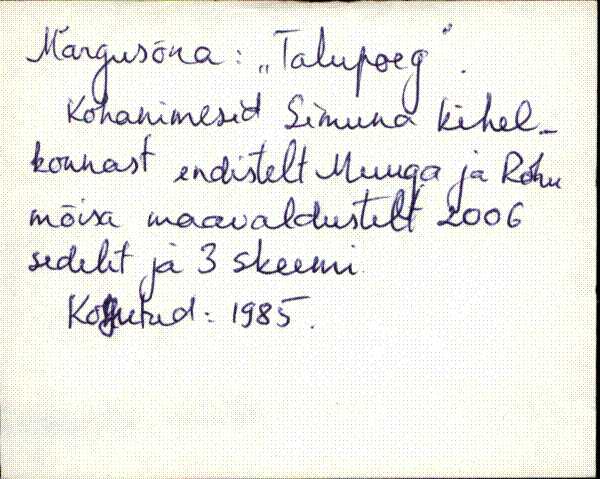 Märgusõna: „Talupoeg".
Kohanimesid Simuna kihel-
konnast endistelt Muuga ja Rohu
mõisa maavaldustelt 2006
sedelit ja 3 skeemi
Kogutud: 1985.